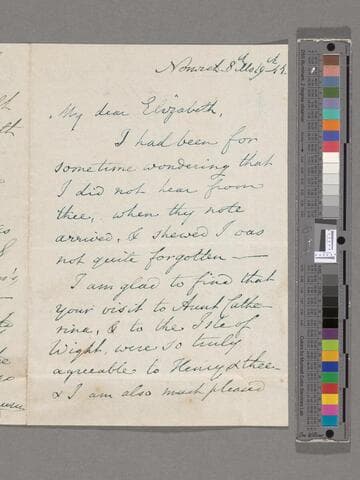 8th Mo 19th
My dear Elizabeth,
I had been for
sometime wondering that
I did not hear from
thee, when thy note
arrived, & shewed I was
not quite forgotten —
I am glad to find that
your visit to Aunt Cathe
rine, & to the Isle of
Wight, were so truly
agreeable to Henry & thee
& I am also much pleased